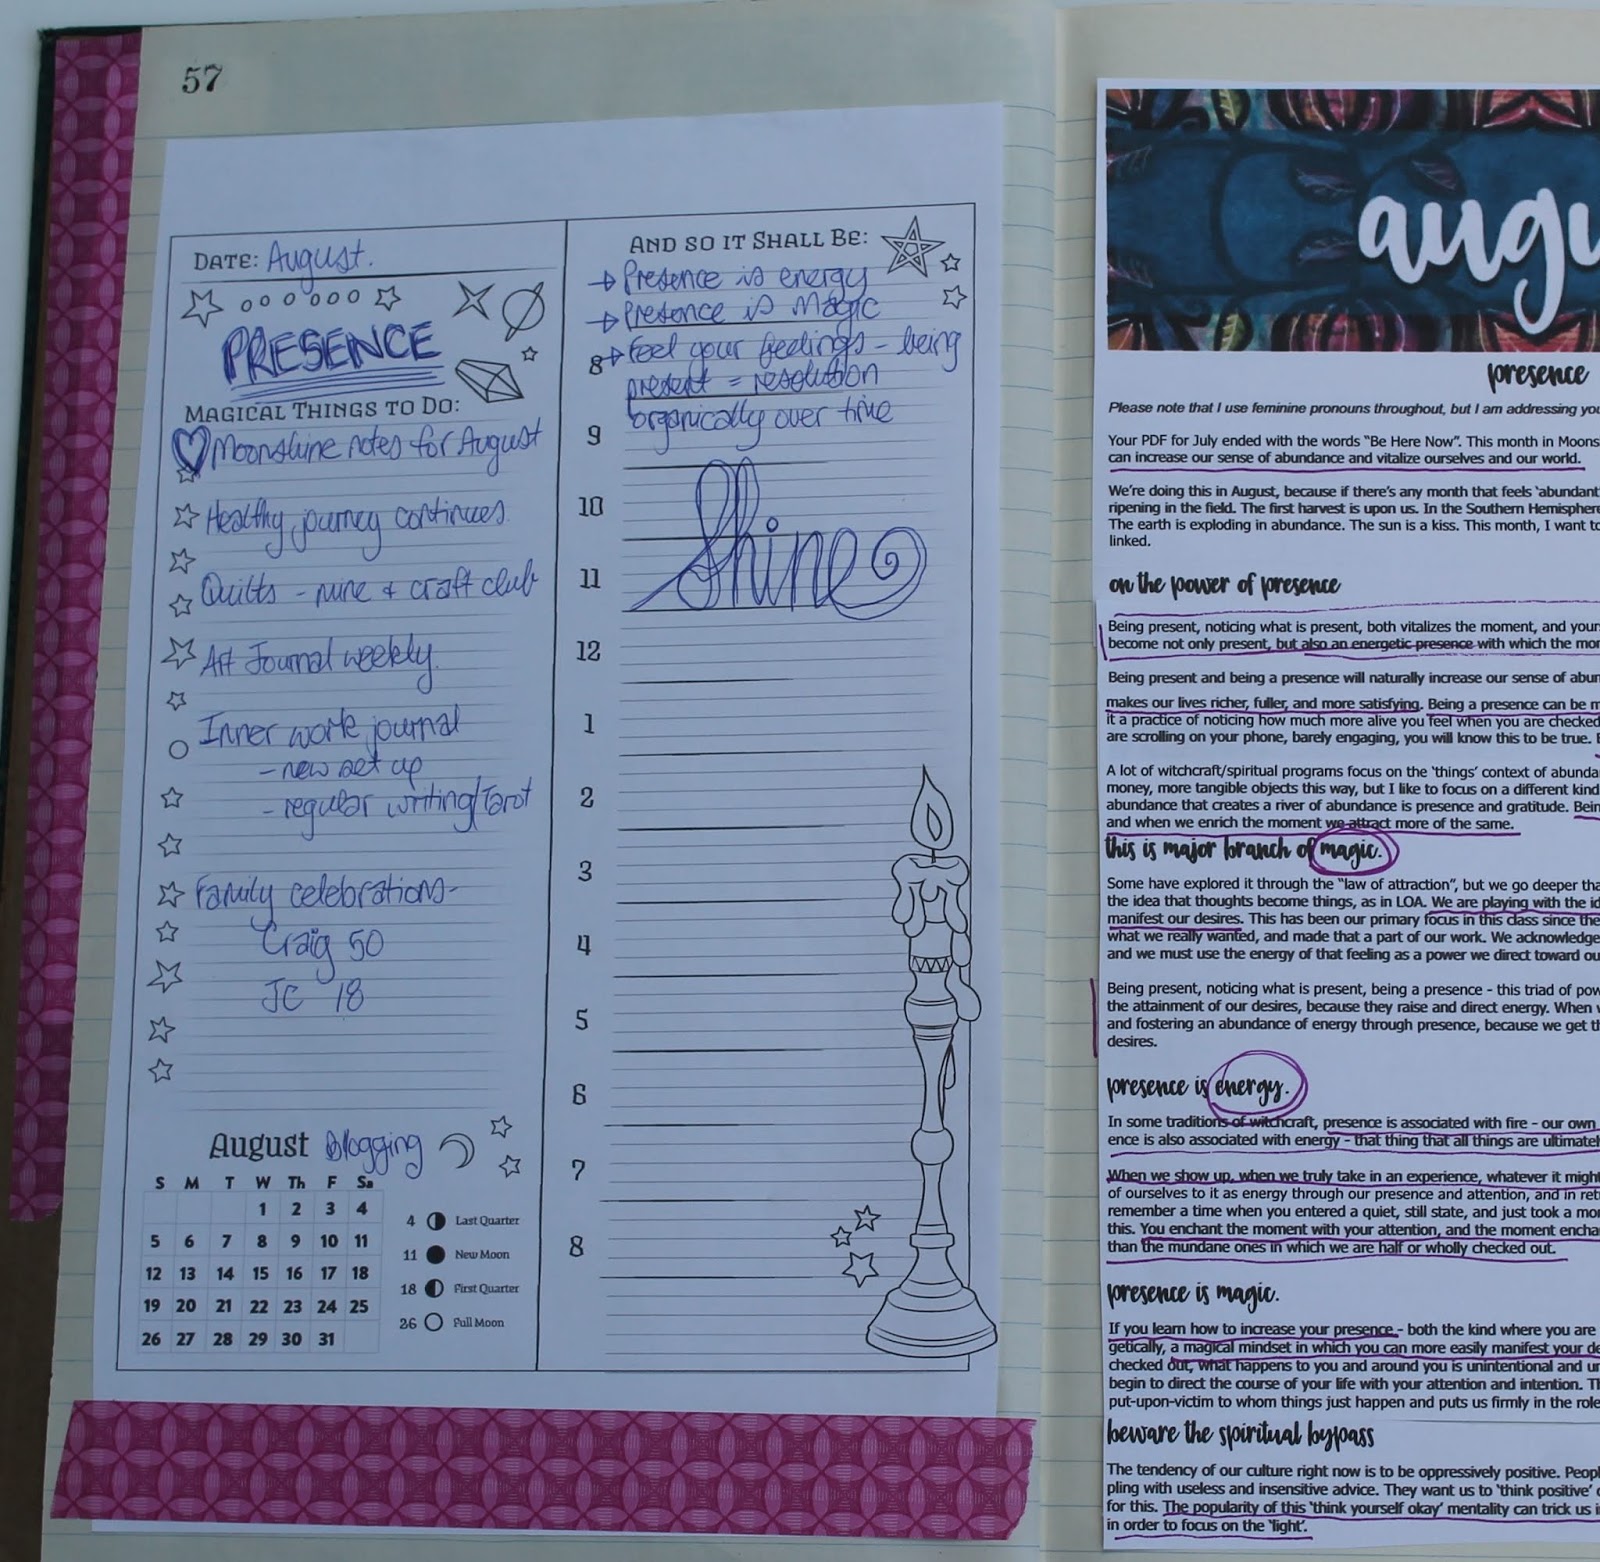 57
DATE: August.
PRESENCE
MAGICAL THINGS TO DO:
Moonshine notes for August
Healthy journey continues
Quilts - mine + craft club
Art Journal weekly.
Inner work journal
- new set up
- regular writing/Tarot
Family celebrations-
Craig 50
JC 18
August Blogging
S M T W Th F Sa
1 2 3 4
5 6 7 8 9 10 11
12 13 14 15 16 17 18
19 20 21 22 23 24 25
26 27 28 29 30 31
4 Last Quarter
11 New Moon
18 First Quarter
26 Full Moon
AND SO IT SHALL BE:
→ Presence is energy
→ Presence is Magic
8 → Feel your feelings - being
present = resolution
9 organically over time
10
Shine
11
12
1
2
3
4
5
6
7
8
augu
presence
Please note that I use feminine pronouns throughout, but I am addressing you
Your PDF for July ended with the words “Be Here Now”. This month in Moons
can increase our sense of abundance and vitalize ourselves and our world.
We’re doing this in August, because if there’s any month that feels ‘abundant’
ripening in the field. The first harvest is upon us. In the Southern Hemisphere
The earth is exploding in abundance. The sun is a kiss. This month, I want to
linked.
on the power of presence
Being present, noticing what is present, both vitalizes the moment, and yours
become not only present, but also an energetic presence with which the mo
Being present and being a presence will naturally increase our sense of abun
makes our lives richer, fuller, and more satisfying. Being a presence can be m
it a practice of noticing how much more alive you feel when you are checked
are scrolling on your phone, barely engaging, you will know this to be true.
A lot of witchcraft/spiritual programs focus on the ‘things’ context of abunda
money, more tangible objects this way, but I like to focus on a different kind
abundance that creates a river of abundance is presence and gratitude. Bein
and when we enrich the moment we attract more of the same.
this is major branch of magic.
Some have explored it through the “law of attraction”, but we go deeper tha
the idea that thoughts become things, as in LOA. We are playing with the id
manifest our desires. This has been our primary focus in this class since the
what we really wanted, and made that a part of our work. We acknowledge
and we must use the energy of that feeling as a power we direct toward ou
Being present, noticing what is present, being a presence - this triad of pow
the attainment of our desires, because they raise and direct energy. When w
and fostering an abundance of energy through presence, because we get th
desires.
presence is energy.
In some traditions of witchcraft, presence is associated with fire - our own
ence is also associated with energy - that thing that all things are ultimatel
When we show up, when we truly take in an experience, whatever it might
of ourselves to it as energy through our presence and attention, and in ret
remember a time when you entered a quiet, still state, and just took a mo
this. You enchant the moment with your attention, and the moment encha
than the mundane ones in which we are half or wholly checked out.
presence is magic.
If you learn how to increase your presence - both the kind where you are
getically, a magical mindset in which you can more easily manifest your de
checked out, what happens to you and around you is unintentional and un
begin to direct the course of your life with your attention and intention. Th
put-upon-victim to whom things just happen and puts us firmly in the role
beware the spiritual bypass
The tendency of our culture right now is to be oppressively positive. Peopl
pling with useless and insensitive advice. They want us to ‘think positive’
for this. The popularity of this ‘think yourself okay’ mentality can trick us i
in order to focus on the ‘light’.